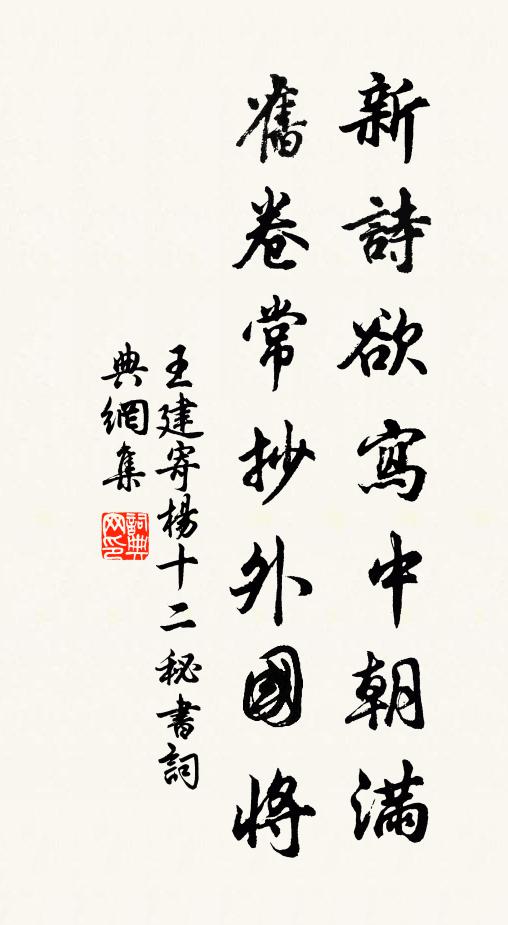 新詩欲寫中朝滿
舊卷常抄外國將
王建寄楊十二秘書詞
典網集
詞典網印